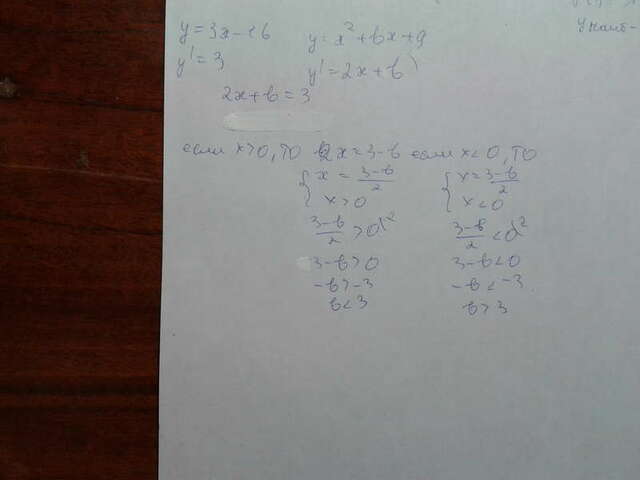 y = 3x - 16 y = x² + bx + 9
y' = 3 y' = 2x + b
2x + b = 3
если x > 0, то 2x = 3 - b если x < 0, то
{ x = 3-b/2 { x = 3-b/2
x > 0 x < 0
3-b/2 > 0 |·2 3-b/2 < 0 |·2
3 - b > 0 3 - b < 0
-b > -3 -b < -3
b < 3 b > 3
y наиб -